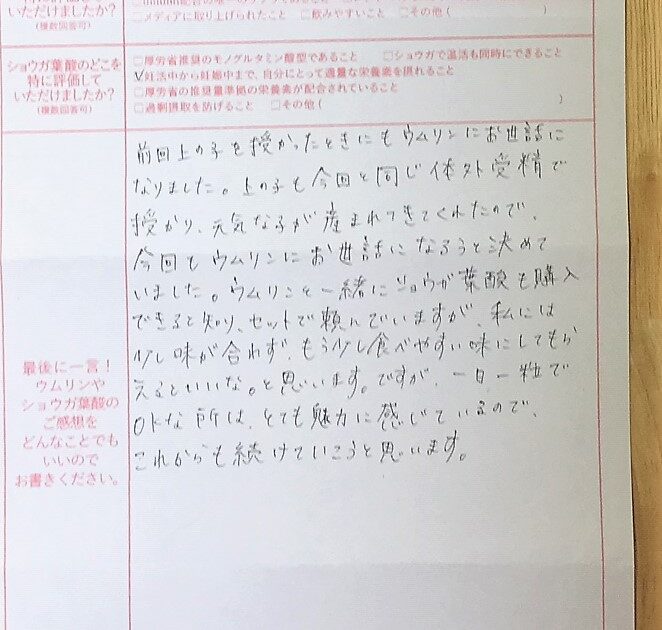 いただけましたか?
(複数回答可)
□メディアに取り上げられたこと □飲みやすいこと □その他(
ショウガ葉酸のどこを
特に評価して
いただけましたか?
(複数回答可)
□厚労省推奨のモノグルタミン酸型であること □ショウガで温活も同時にできること
☑妊活中から妊娠中まで、自分にとって適量な栄養素を摂れること
□厚労省の推奨量準拠の栄養素が配合されていること
□過剰摂取を防げること □その他( )
前回上の子を授かったときにもウムリンにお世話に
なりました。上の子も今回と同じ体外受精で
授かり、元気な子が産まれてきてくれたので、
今回もウムリンにお世話になろうと決めて
いました。ウムリンと一緒にショウガ葉酸も購入
できると知り、セットで頼んでいますが、私には
少し味が合わず、もう少し食べやすい味にしてもら
えるといいな。と思います。ですが、一日一粒で
OKな所は、とても魅力に感じているので、
これからも続けていこうと思います。
最後に一言!
ウムリンや
ショウガ葉酸の
ご感想を
どんなことでも
いいので
お書きください。